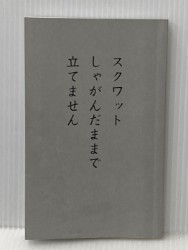 スクワット
しゃがんだままで
立てません